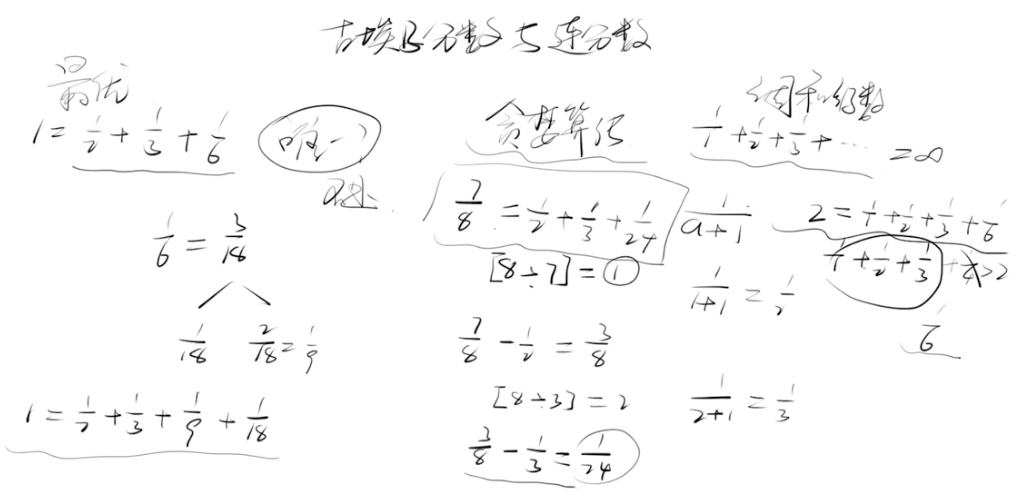 古埃及分数与连分数
最优
1 = 1/2 + 1/3 + 1/6
唯一
1/6 = 3/18
1/18 2/18 = 1/9
1 = 1/2 + 1/3 + 1/9 + 1/18
贪婪算法
7/8 = 1/2 + 1/3 + 1/24
[8÷7] = 1
7/8 - 1/2 = 3/8
[8÷3] = 2
3/8 - 1/3 = 1/24
1/(a+1)
1/(1+1) = 1/2
1/(2+1) = 1/3
调和级数
1/1 + 1/2 + 1/3 + ... = ∞
2 = 1/1 + 1/2 + 1/3 + 1/6
1/1 + 1/2 + 1/3 + 1/4 > 2
1/6